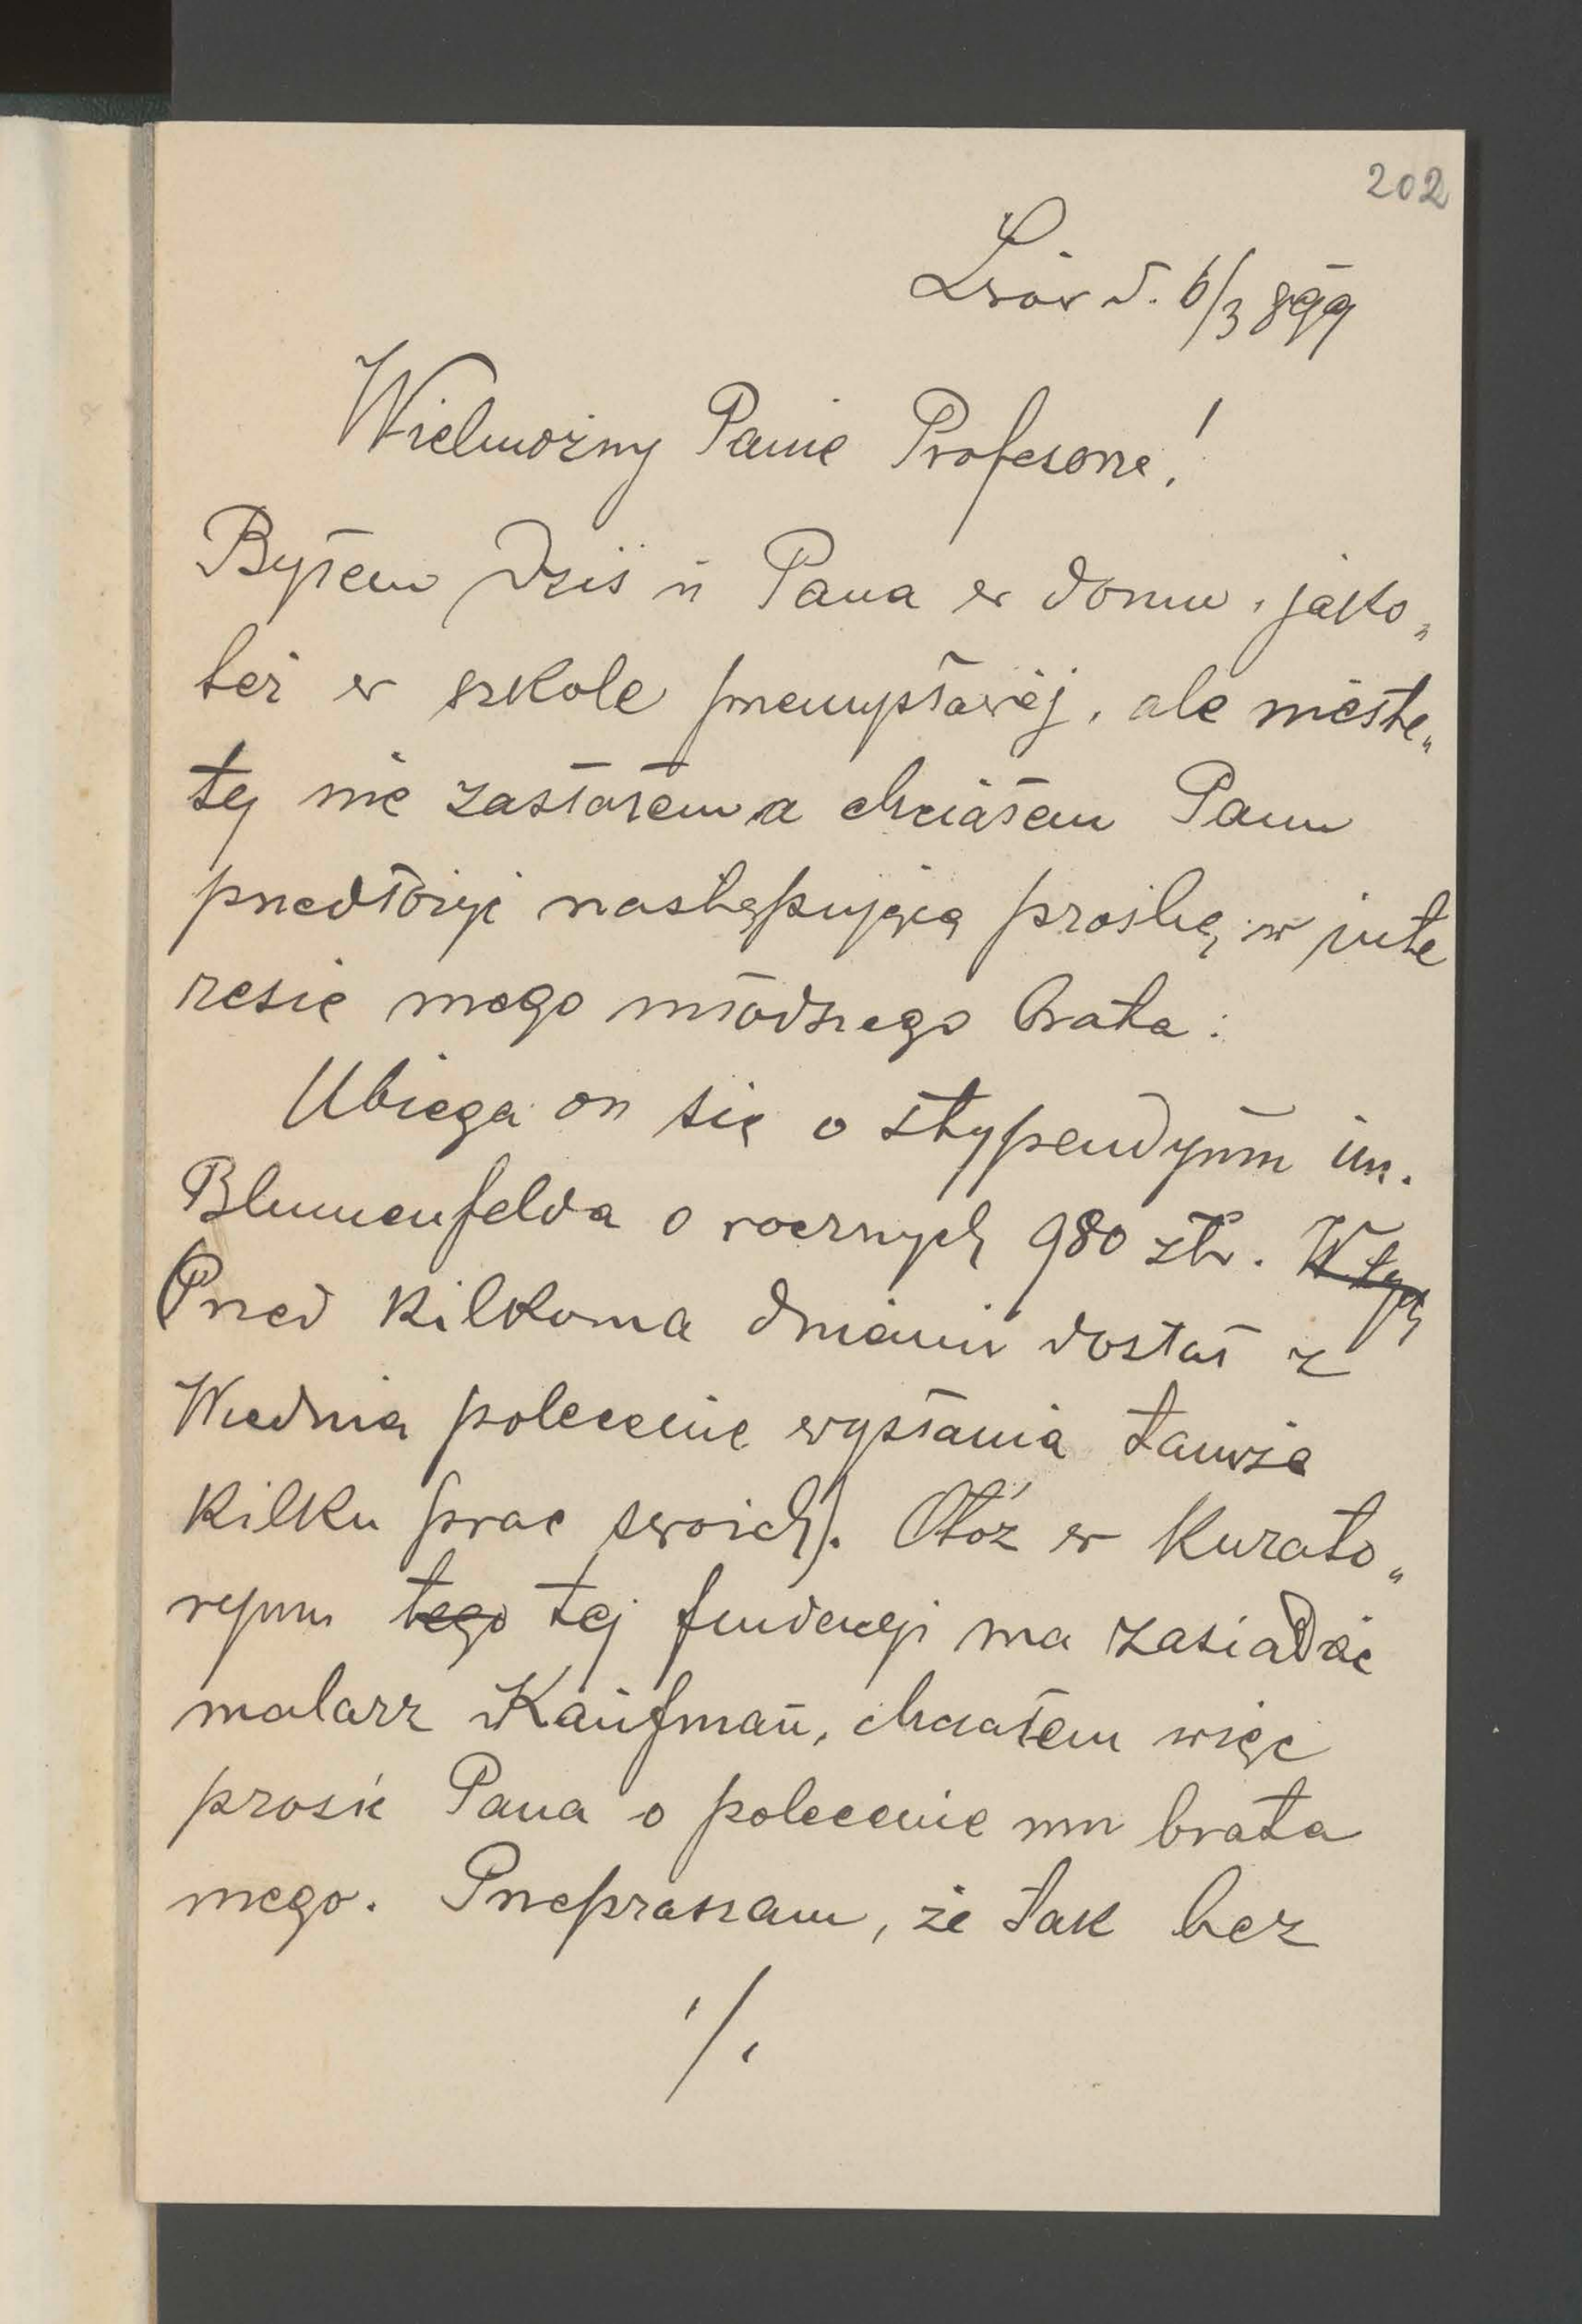 202
Lwów d. 6/3 899
Wielmożny Panie Profesorze!
Byłem dziś u Pana w domu, jako„
też w szkole przemysłowéj, ale nieste„
ty nie zastałem a chciałem Panu
przedłożyć następującą prośbę w inte
resie mego młodszego brata:
Ubiega on się o stypendyum im.
Blumenfelda o rocznych 980 złr. W tych
(Przed kilkoma dniami dostał z
Wiednia polecenie wysłania tamże
kilku prac swoich). Otóż w Kurato„
ryum tego tej fundacyi ma zasiadać
malarz Kaufman, chciałem więc
prosić Pana o polecenie mu brata
mego. Przepraszam, że tak bez
./.